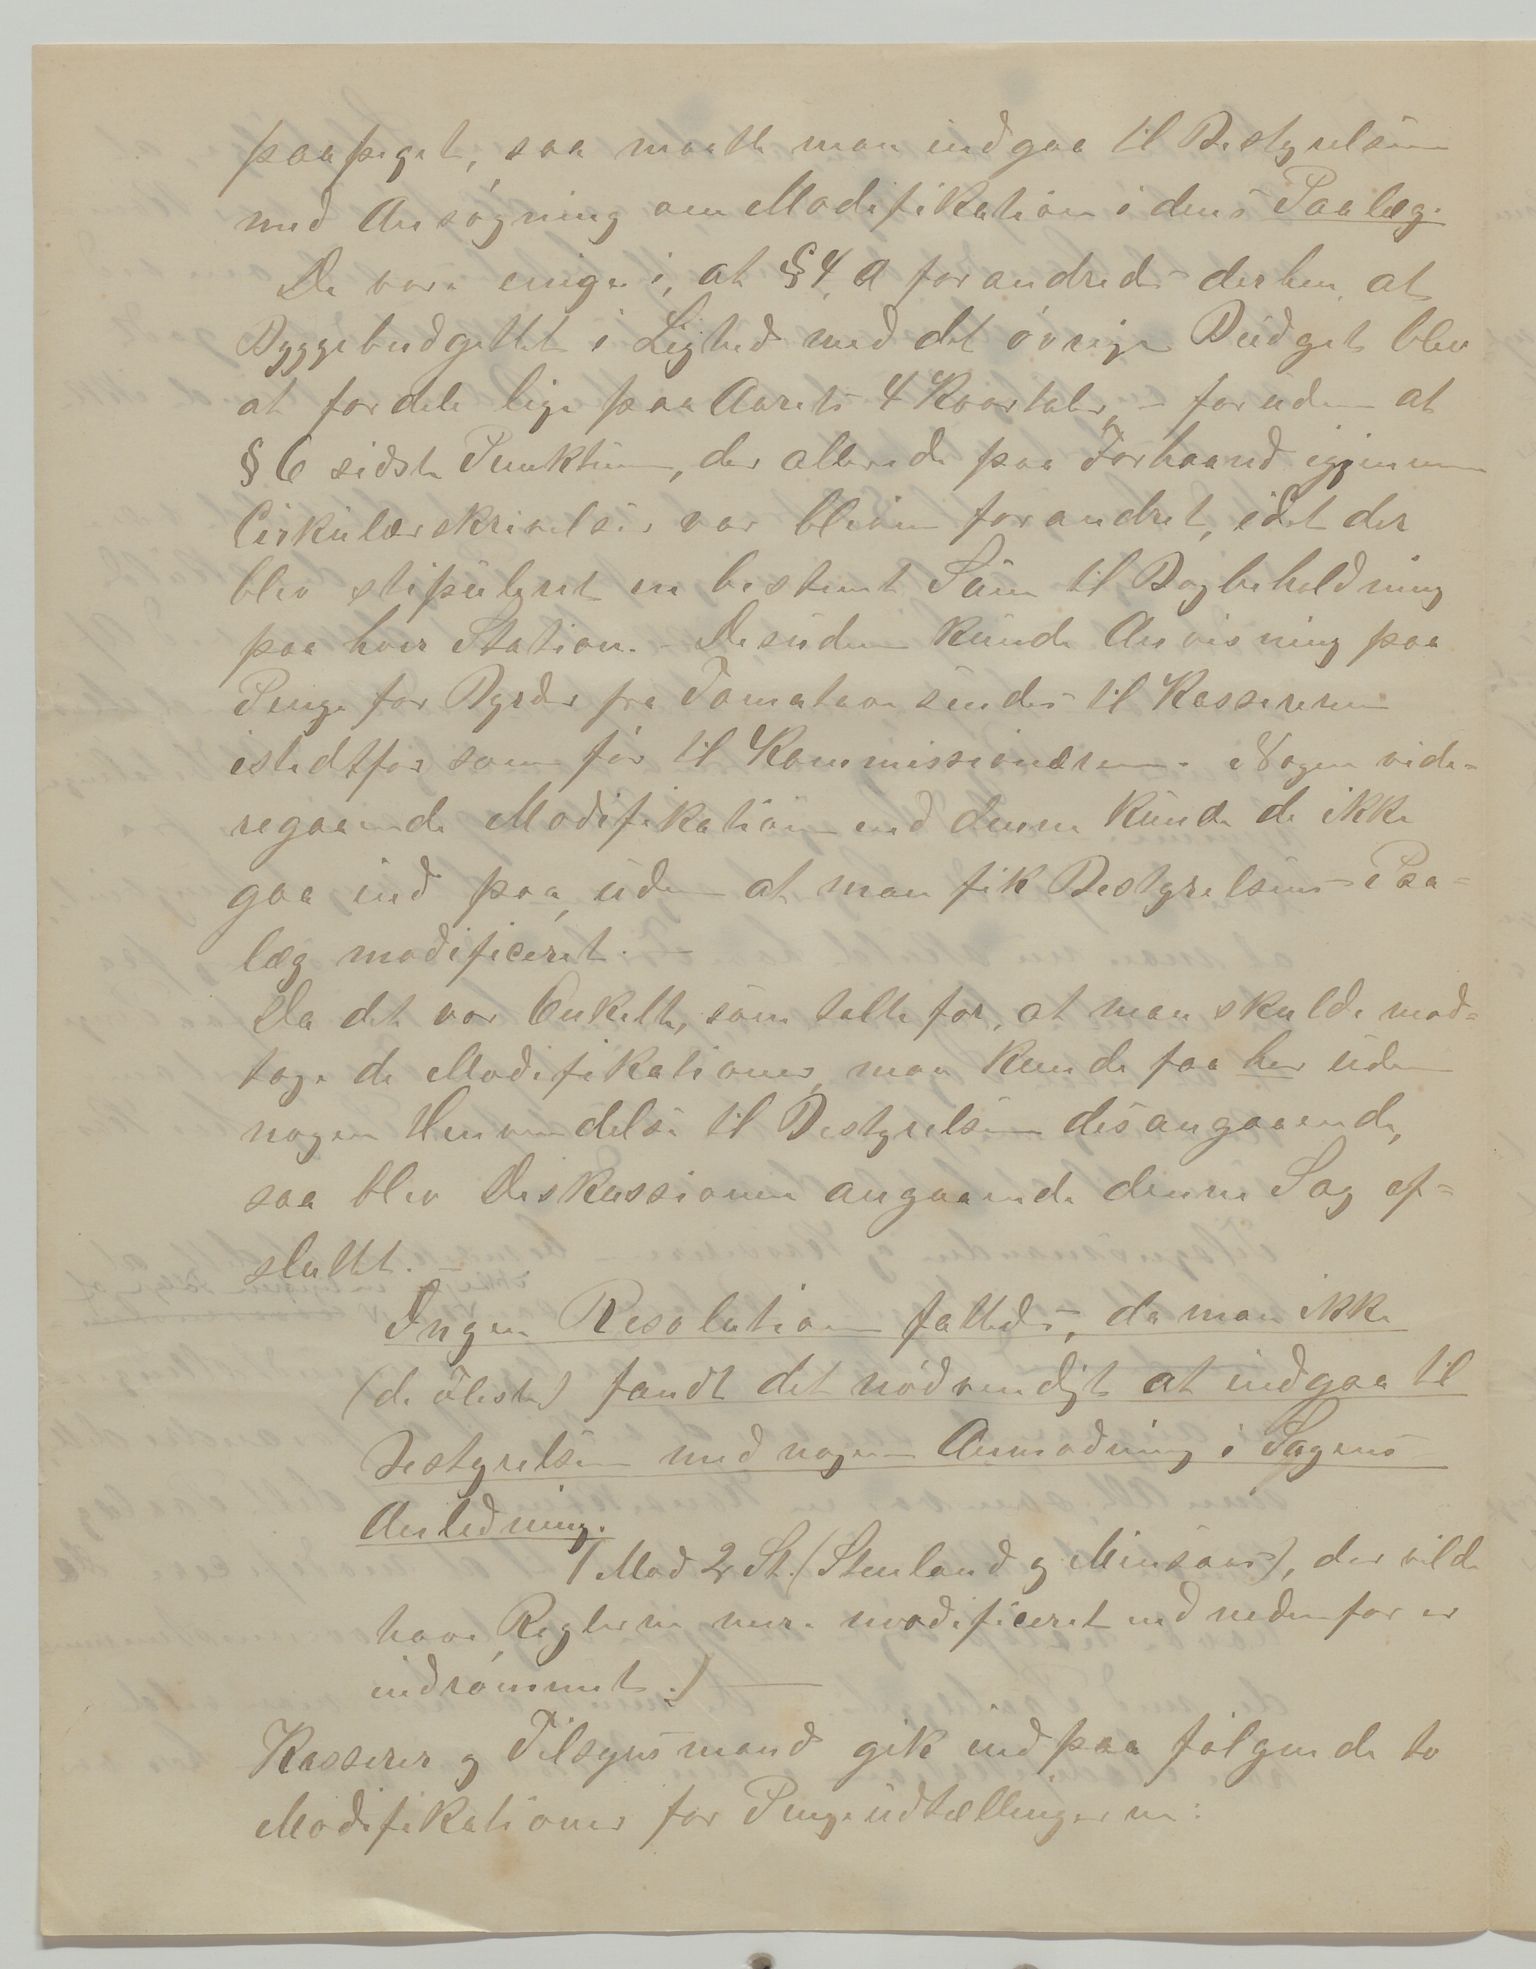 paapeget, saa maatte man indgaa til Bestyrelsen
med Ansøgning om Modifikation i dens Paalæg.
De vare enige i, at § 4, a forandredes derhen, at
Byggebudgettet i Lighed med det øvrige Budget blev
at fordele lige paa Aarets 4 Kvartaler, - foruden at
§ 6 sidste Punktum, der allerede paa Forhaand igjennem
Cirkulærskrivelser var bleven forandret, idet der
blev stipuleret en bestemt Sum til Bagbeholdning
paa hver Station. - Desuden kunde Anvisning paa
Penge for Byrder fra Tamatave sendes til Kassereren
istedtfor som før til Kommissionæren. Nogen vide-
regaaende Modifikation end denne kunde de ikke
gaa ind paa, uden at man fik Bestyrelsens Paa-
læg modificeret. -
Da det var Enkelte, som talte for, at man skulde mod-
tage de Modifikationer, man kunde faa her uden
nogen Henvendelse til Bestyrelsen desangaaende,
saa blev Diskussionen angaaende denne Sag af-
sluttet. -
Ingen Resolution fattedes, da man ikke
(de fleste) fandt det nødvendigt at indgaa til
Bestyrelsen med nogen Anmodning i Sagens
Anledning.
(Mod 2 St. (Stenland og Minsaas), der vilde
have Reglerne mere modificeret end nedenfor er
indrømmet.) -
Kasserer og Tilsynsmand gik ind paa følgende to
Modifikationer for Pengeudtællingerne: